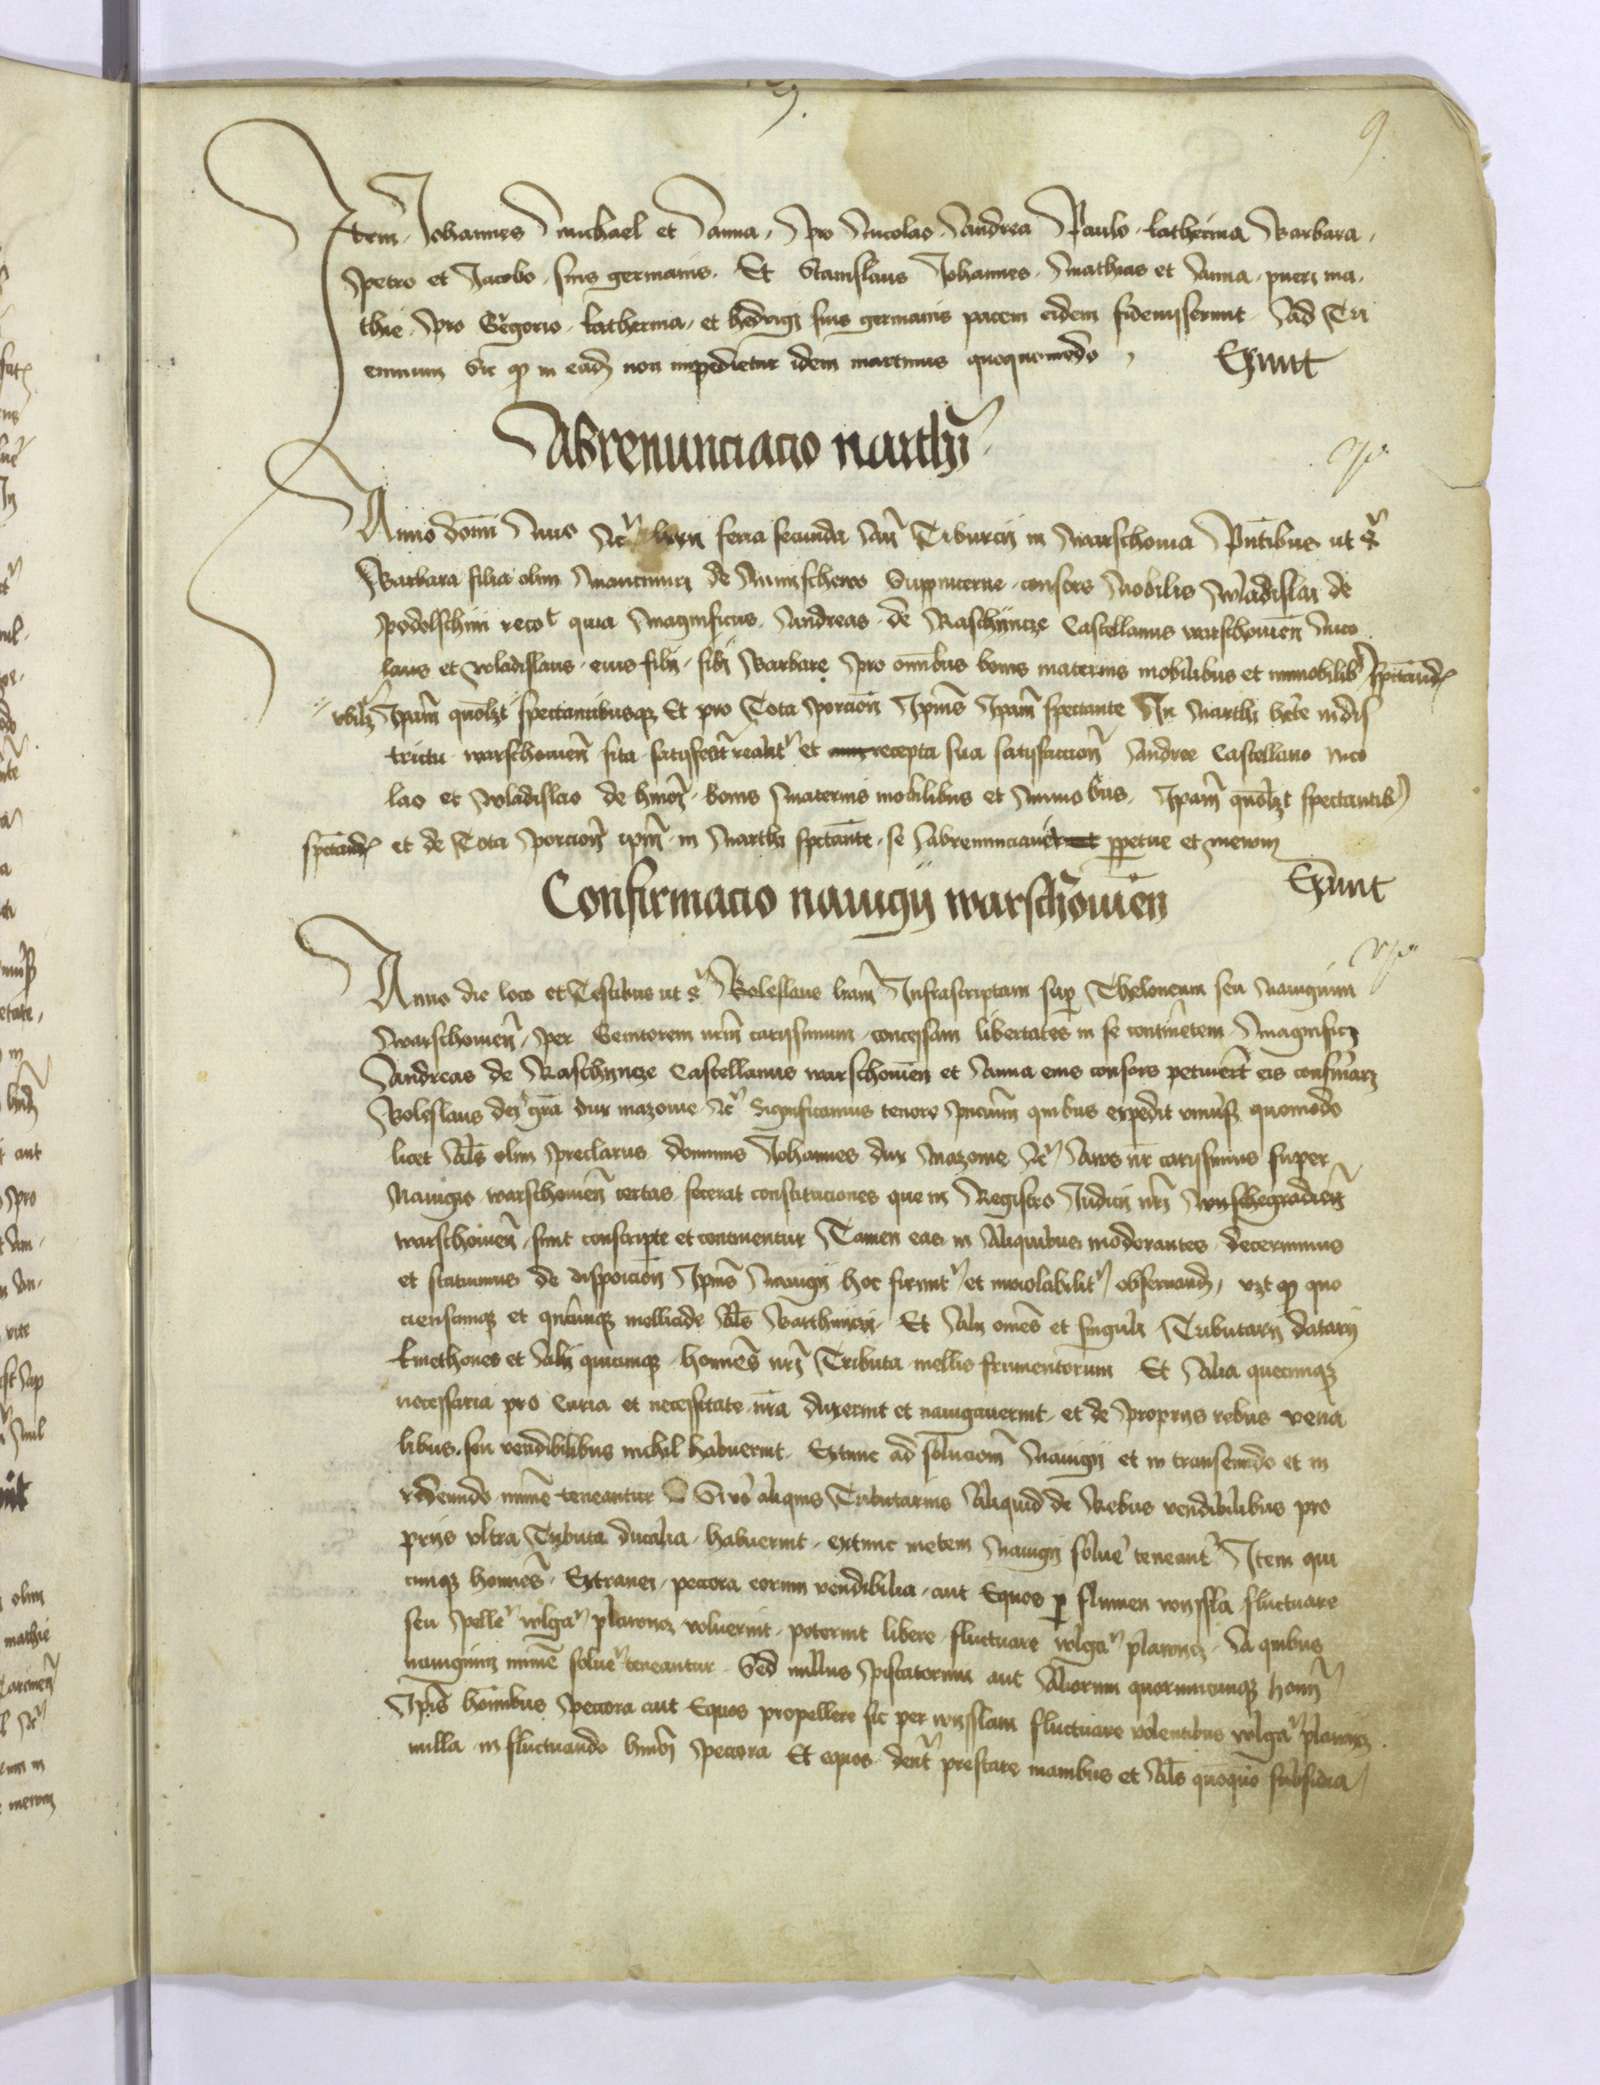 9.
9
Item Johannes Michael et Anna, pro Nicolao Andrea Paulo Katherina Barbara,
Petro et Jacobo suis germanis. Et Stanislaus Johannes Mathias et Anna pueri ma
thie pro Gregorio Katherina et hedvigi suis germanis pacem eidem fideiusserunt Ad Tri
ennium Sic qz in ead non impedietur idem martinus quoquomodo, Exiunt
Abrenunciacio narthi
Anno domini feria secunda Tiburcii in Warschouia Pntibus ut
Barbara filia olim de consors Nobilis Wladislai de
recot quia Magnificus Andreas de Raschincze Castellanus warschouien Nico
laus et wladislaus eius filii sibi Barbare pro omnibus bonis maternis mobilibus et immobilib spectand
Ipam quolzt spectantibusqz Et pro Tota porcion Ipius Ipam spectante In Narthi in dis
trictu warschouien sita satisfecert et recepta sua satisfaccion Andree Castellano Nico
lao et Wladislao de bonis maternis mobilibus et immobus, Ipam quolzt spectantib
spectand et de Tota porcion in Narthi spectante se Abrenunciauit ppetue et in euom
Exiunt
Confirmacio nauigii warschouien
Anno die loco et Testibus ut Boleslaus lram Infrascriptam sup Theloneum seu Nauigium
Warschouien, per Genitorem nrm carissimum concessam libertates in se continetem Magnificz
Andreas de Raschincze Castellanus warschouien et Anna eius consors petiuert eis confirmarz
Boleslaus dei gra dux mazouie Significamus tenore pncium quibus expedit vniuss quomodo
licet Als olim Preclarus dominus Johannes dux Mazouie Auus nr carissimus super
Nauigio warschouien certas fecerat constituciones que in Registro Judicii nri Wyschegradien
warschouien sunt conscripte et continentur Tamen eas in Aliquibus moderantes decernimus
et statuimus de disposicion Ipius Nauigii hoc firmit et inuiolabilit obseruand, vzt qz quo
cienscunqz et qncunqz mellicide Als Barthnici Et Alii omes et singuli Tributarii datarii
Kmethones et Alii quicunqz homines nri Tributa mellis frumentorum Et Alia quecunqz
necessaria pro Curia et necessitate nra duxerint et nauigauerint et de propriis rebus vena
libus seu vendibilibus nichil habuerint Extunc ad solucionem Nauigii et in transeundo et in
redeundo minime teneantur Si vero aliquis Tributarius Aliquid de Rebus vendibilibus pro
priis vltra Tributa ducalia habuerint extunc metem Nauigii soluere teneant Item qui
cunqz homines Extranei peccora eorum vendibilia aut Equos p flumen wyssla fluctuare
seu pelle wlga plawicz voluerint poterint libere fluctuare wlga plawicz A quibus
nauigium minime soluere teneantur Sed nullus piscatorum aut Aliorum quorumcunqz homin
Ipis hominibus peccora aut Equos propellere sic per wysslam fluctuare volentibus wlga plawicz
nulla in fluctuando peccora Et equos prestare manibus et Als quoquo subsidia